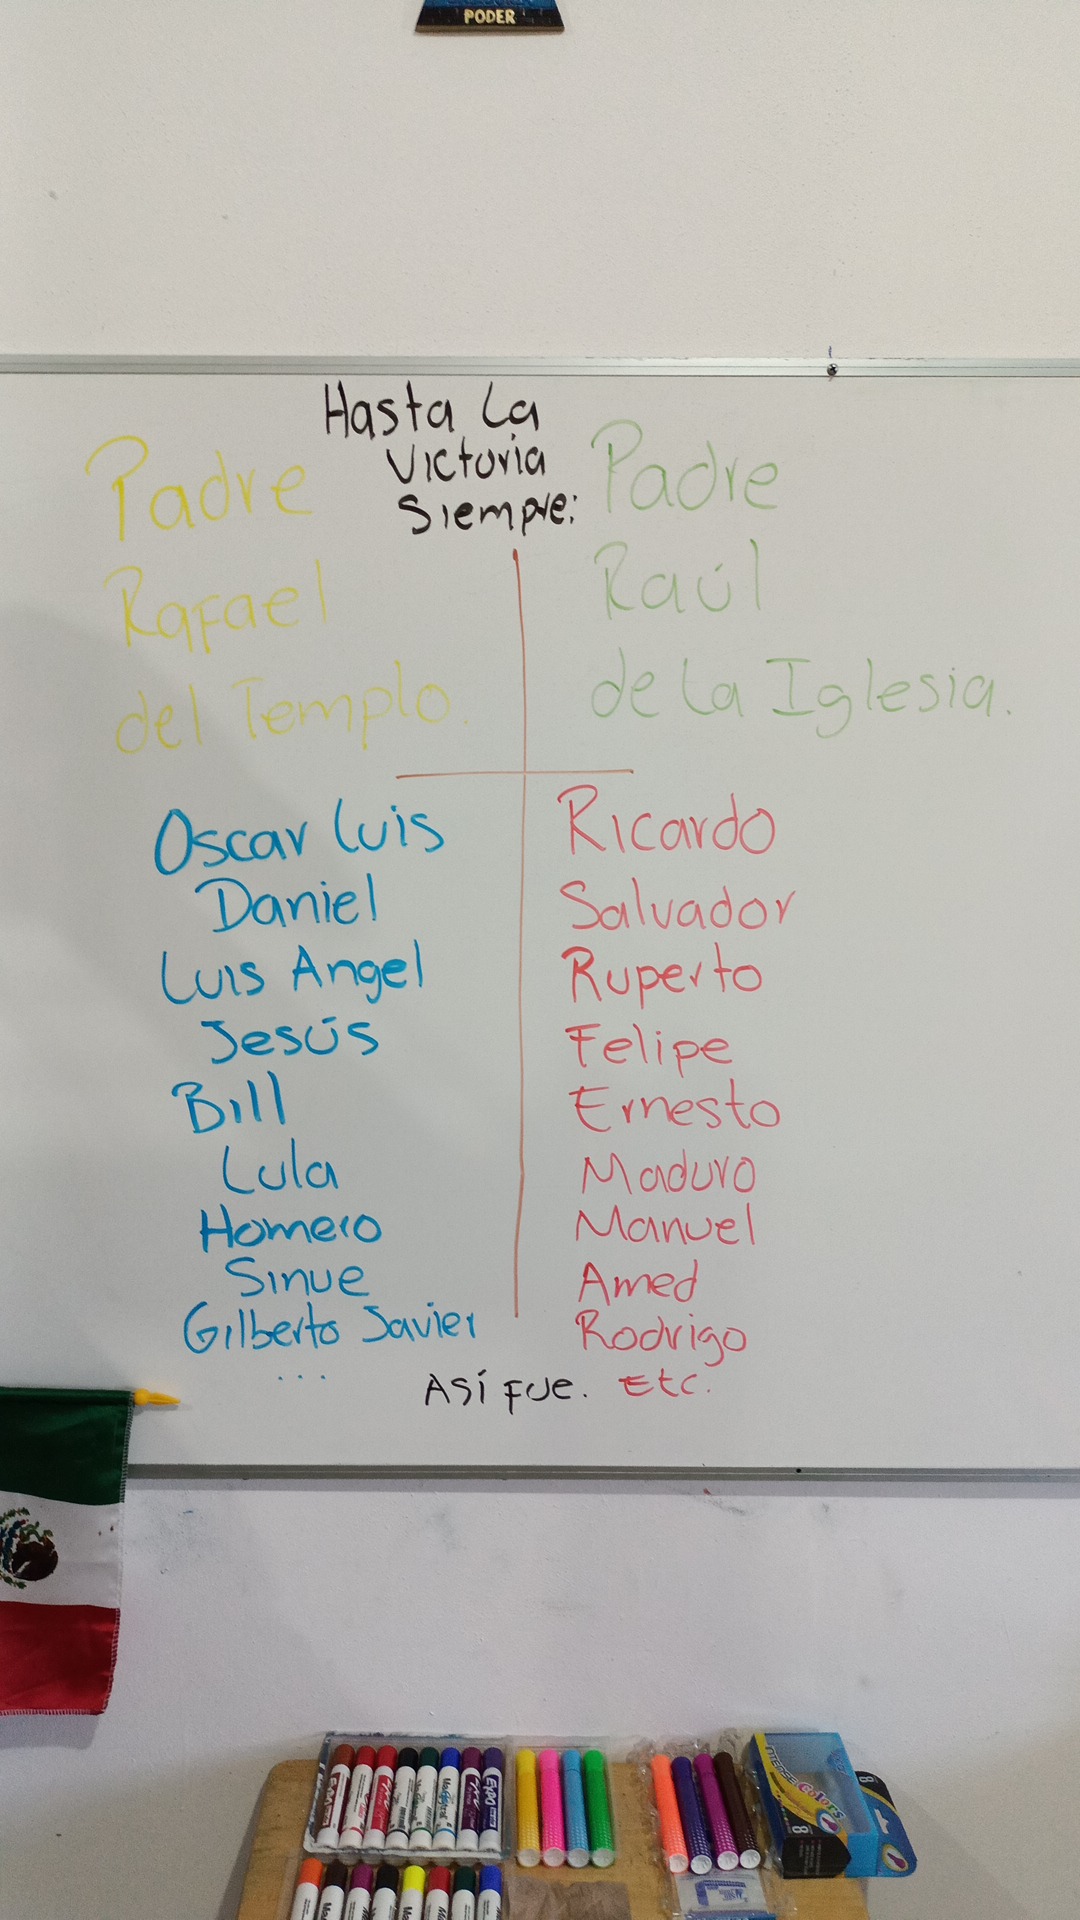 PODER
Hasta La
Victoria
Siempre:
Padre
Rafael
del Templo.
Padre
Raúl
de La Iglesia.
Oscar Luis
Daniel
Luis Angel
Jesús
Bill
Lula
Homero
Sinue
Gilberto Javier
...
Ricardo
Salvador
Ruperto
Felipe
Ernesto
Maduro
Manuel
Amed
Rodrigo
Etc.
Así fue.
EXPO
Colors
8
8